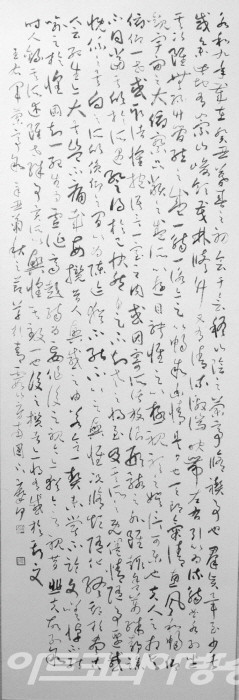 永和九年歲在癸丑暮春之初會于會稽山陰之蘭亭修禊事也群賢畢至少長
咸集此地有崇山峻領茂林脩竹又有清流激湍映帶左右引以為流觴曲水列坐
絲竹管弦之盛一觴一詠亦足以暢敘幽情是日也天朗氣清惠風和暢仰
觀宇宙之大俯察品類之盛所以遊目騁懷足以極視聽之娛信可樂也夫人之相與
俯仰一世或取諸懷抱悟言一室之內或因寄所託放浪形骸之外雖趣舍萬殊靜躁
不同當其欣於所遇暫得於己快然自足不知老之將至及其所之既惓情隨事遷感
慨係之矣向之所欣俛仰之間以為陳迹猶不能不以之興懷況脩短隨化終期於盡古
人云死生亦大矣豈不痛哉每攬昔人興感之由若合一契未嘗不臨文嗟悼不能
喻之於懷固知一死生為虛誕齊彭殤為妄作後之視今亦由今之視昔悲夫故列敘
時人錄其所述雖世殊事異所以興懷其致一也後之攬者亦將有感於斯文
王右軍蘭亭序辛丑菊秋之節
아트코리아방송